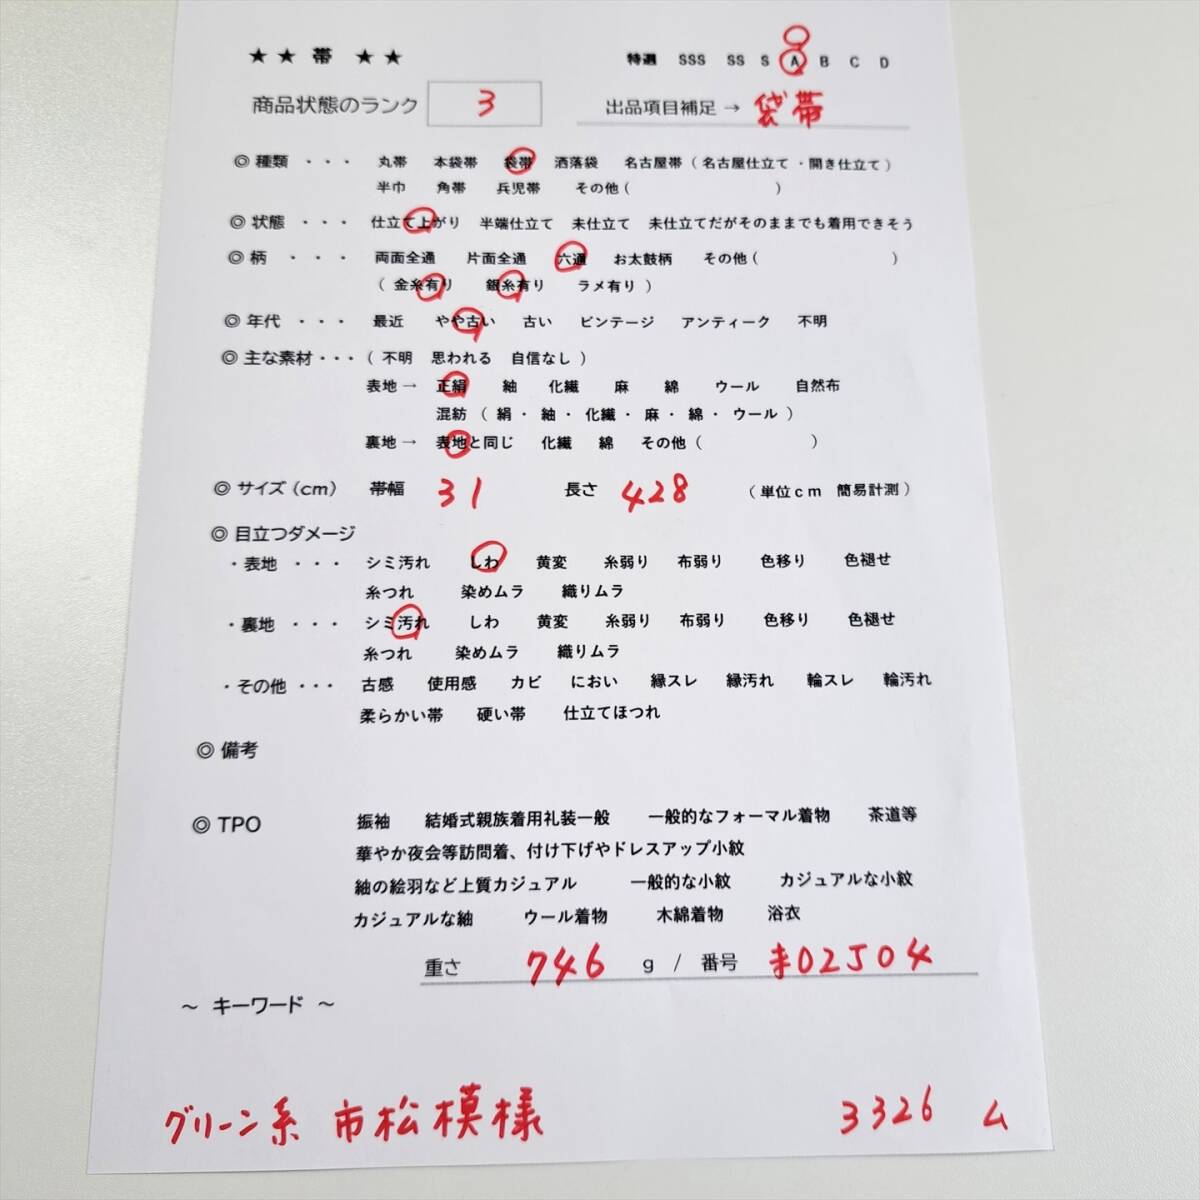 ★ ★ 帯 ★ ★ 特選 SSS SS S A B C D
商品状態のランク 3 出品項目補足 → 袋帯
◎ 種類 ・・・ 丸帯 本袋帯 袋帯 洒落袋 名古屋帯 ( 名古屋仕立て ・ 開き仕立て )
半巾 角帯 兵児帯 その他 ( )
◎ 状態 ・・・ 仕立て上がり 半端仕立て 未仕立て 未仕立てだがそのままでも着用できそう
◎ 柄 ・・・ 両面全通 片面全通 六通 お太鼓柄 その他 ( )
( 金糸有り 銀糸有り ラメ有り )
◎ 年代 ・・・ 最近 やや古い 古い ビンテージ アンティーク 不明
◎ 主な素材・・・ ( 不明 思われる 自信なし )
表地 → 正絹 紬 化繊 麻 綿 ウール 自然布
混紡 ( 絹・ 紬・ 化繊・ 麻・ 綿・ ウール )
裏地 → 表地と同じ 化繊 綿 その他 ( )
◎ サイズ (cm) 帯幅 31 長さ 428 ( 単位cm 簡易計測 )
◎ 目立つダメージ
・表地 ・・・ シミ汚れ しわ 黄変 糸弱り 布弱り 色移り 色褪せ
糸つれ 染めムラ 織りムラ
・裏地 ・・・ シミ汚れ しわ 黄変 糸弱り 布弱り 色移り 色褪せ
糸つれ 染めムラ 織りムラ
・その他 ・・・ 古感 使用感 カビ におい 縁スレ 縁汚れ 輪スレ 輪汚れ
柔らかい帯 硬い帯 仕立てほつれ
◎ 備考
◎ TPO 振袖 結婚式親族着用礼装一般 一般的なフォーマル着物 茶道等
華やか夜会等訪問着、付け下げやドレスアップ小紋
紬の絵羽など上質カジュアル 一般的な小紋 カジュアルな小紋
カジュアルな紬 ウール着物 木綿着物 浴衣
重さ 746 g / 番号 キ02504
～ キーワード ～
グリーン系 市松模様 3326 ム